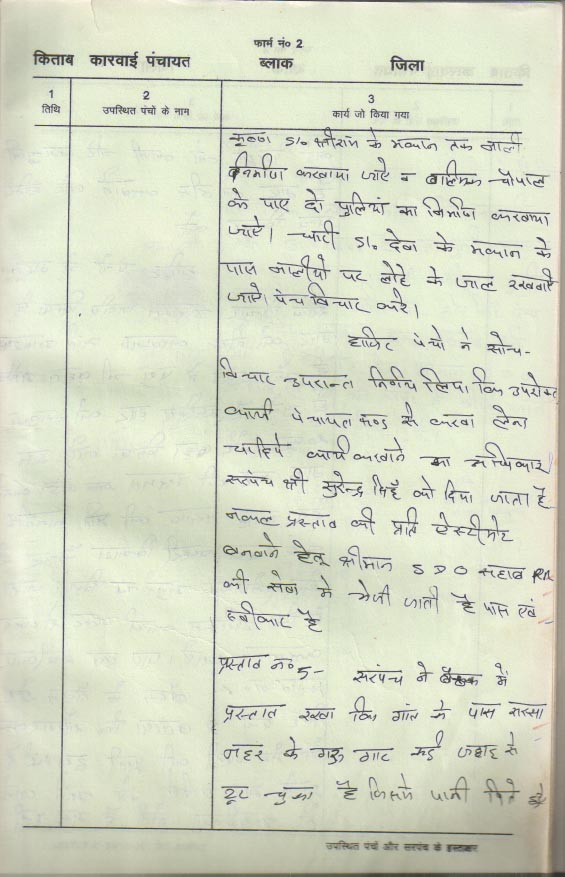 फार्म नं० 2
किताब कारवाई पंचायत ब्लाक जिला
1 2 3
तिथि उपस्थित पंचों के नाम कार्य जो किया गया
कृष्ण S/o श्रीराम के मकान तक नाली
निर्माण करवाया जाऐ व वाल्मिक चौपाल
के पास दो पुलियां का निर्माण करवाया
जाऐ। S/o देवा के मकान के
पास नालीयो पर लोहे के जाल रखवाऐ
जाऐ। पंच विचार करे।
हाजिर पंचो ने सोच-
विचार उपरान्त निर्णय लिया कि उपरोक्त
कार्य पंचायत फण्ड से करवा लेना
चाहिये कार्य करवाने का अधिकार
सरपंच श्री सुरेन्द्र सिहँ को दिया जाता है
नकल प्रस्ताव की प्रति ऐस्टीमेट
बनवाने हेतू श्रीमान S D O साहब P.R.
की सेवा मे भेजी जाती है पास एवं
स्वीकार है
प्रस्ताव नं० 5- सरपंच ने में
प्रस्ताव रखा कि गांव के पास सरसा
नहर के गऊ घाट कई जगह से
टूट चुका है जिसमे पानी पिने
उपस्थित पंचों और सरपंच के हस्ताक्षर